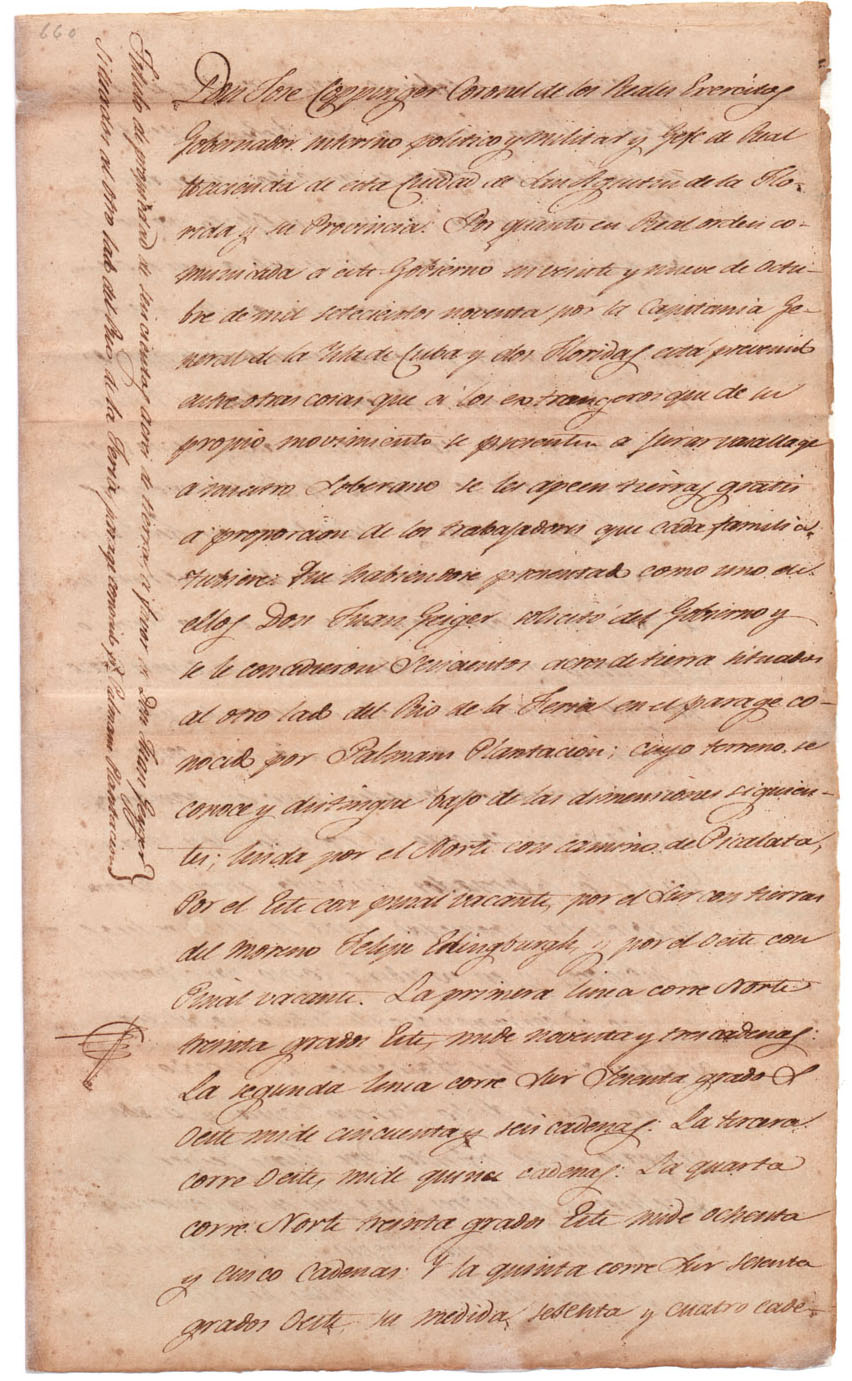 660
Titulo de propiedad de seiscientos acres de tierra, a favor de Don Juan Geiger
situados al otro lado del Rio de la Feria, parage conocido por Palmans Plantacion
Don Jose Coppinger Coronel de los Reales Exercitos
Gobernador interino politico y Militar y Gefe de Real
Hacienda de esta Ciudad de San Agustin de la Flo-
rida y su Provincia: Por quanto en Real orden co-
municada a este Gobierno en veinte y nueve de Octu-
bre de mil setecientos noventa por la Capitania Ge-
neral de la Ysla de Cuba y dos Floridas está prevenido
entre otras cosas que á los extrangeros que de su
propio movimiento se presenten a jurar vasallage
a nuestro Soberano se les apeen tierras gratis
a proporcion de los trabajadores que cada familia
tubiere: Que habiendose presentado como uno de
ellos Don Juan Geiger solicitó del Gobierno y
se le concedieron Seiscientos acres de tierra situados
al otro lado del Rio de la Feria en el parage co-
nocido por Palmans Plantacion; cuyo terreno se
conoce y distingue bajo de las dimensiones siguien-
tes; linda por el Norte con camino de Picalata,
Por el Este con pinal vacante, por el Sur con tierras
del moreno Felipe Edingburgh, y por el Oeste con
Pinal vacante. La primera linea corre Norte
treinta grados Este, mide noventa y tres cadenas:
La segunda linea corre Sur Setenta grados
Oeste mide cincuenta y seis cadenas: La tercera
corre Oeste, mide quince cadenas: La quarta
corre Norte treinta grados Este mide ochenta
y cinco cadenas: Y la quinta corre Sur setenta
grados Oeste, su medida, sesenta y cuatro cade-